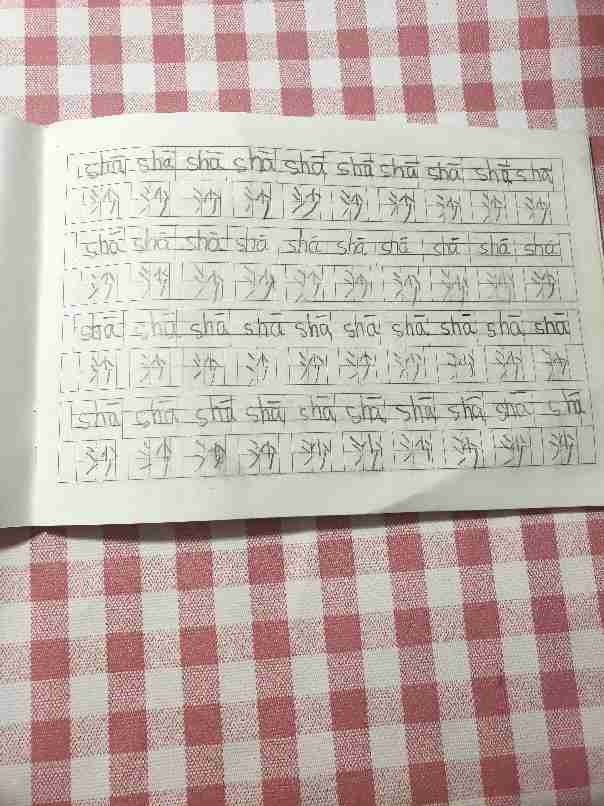 shā shā shā shā shā shā shā shā shā shā
沙 沙 沙 沙 沙 沙 沙 沙 沙 沙
shā shā shā shā shā shā shā shā shā shā
沙 沙 沙 沙 沙 沙 沙 沙 沙 沙
shā shā shā shā shā shā shā shā shā shā
沙 沙 沙 沙 沙 沙 沙 沙 沙 沙
shā shā shā shā shā shā shā shā shā shā
沙 沙 沙 沙 沙 沙 沙 沙 沙 沙